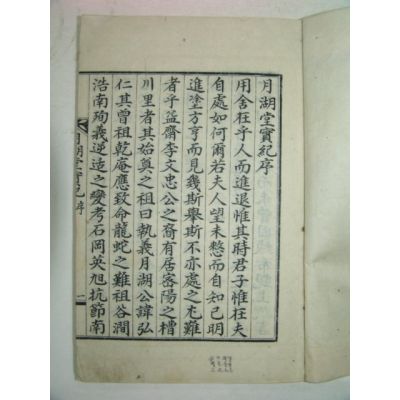 月湖堂實紀序
用舍在乎人而進退惟其時君子惟在夫
自處如何爾若夫人望未愁而自知已明
進塗方亨而見幾斯舉斯不亦處之尤難
者乎益齋李文忠公之裔有居密陽之槽
川里者其始奠之祖曰執義月湖公諱弘
仁其曾祖乾庵應致命龍蛇之難祖谷澗
浩南殉義逆造之變考石岡英旭抗節南
月湖堂實紀 序
一